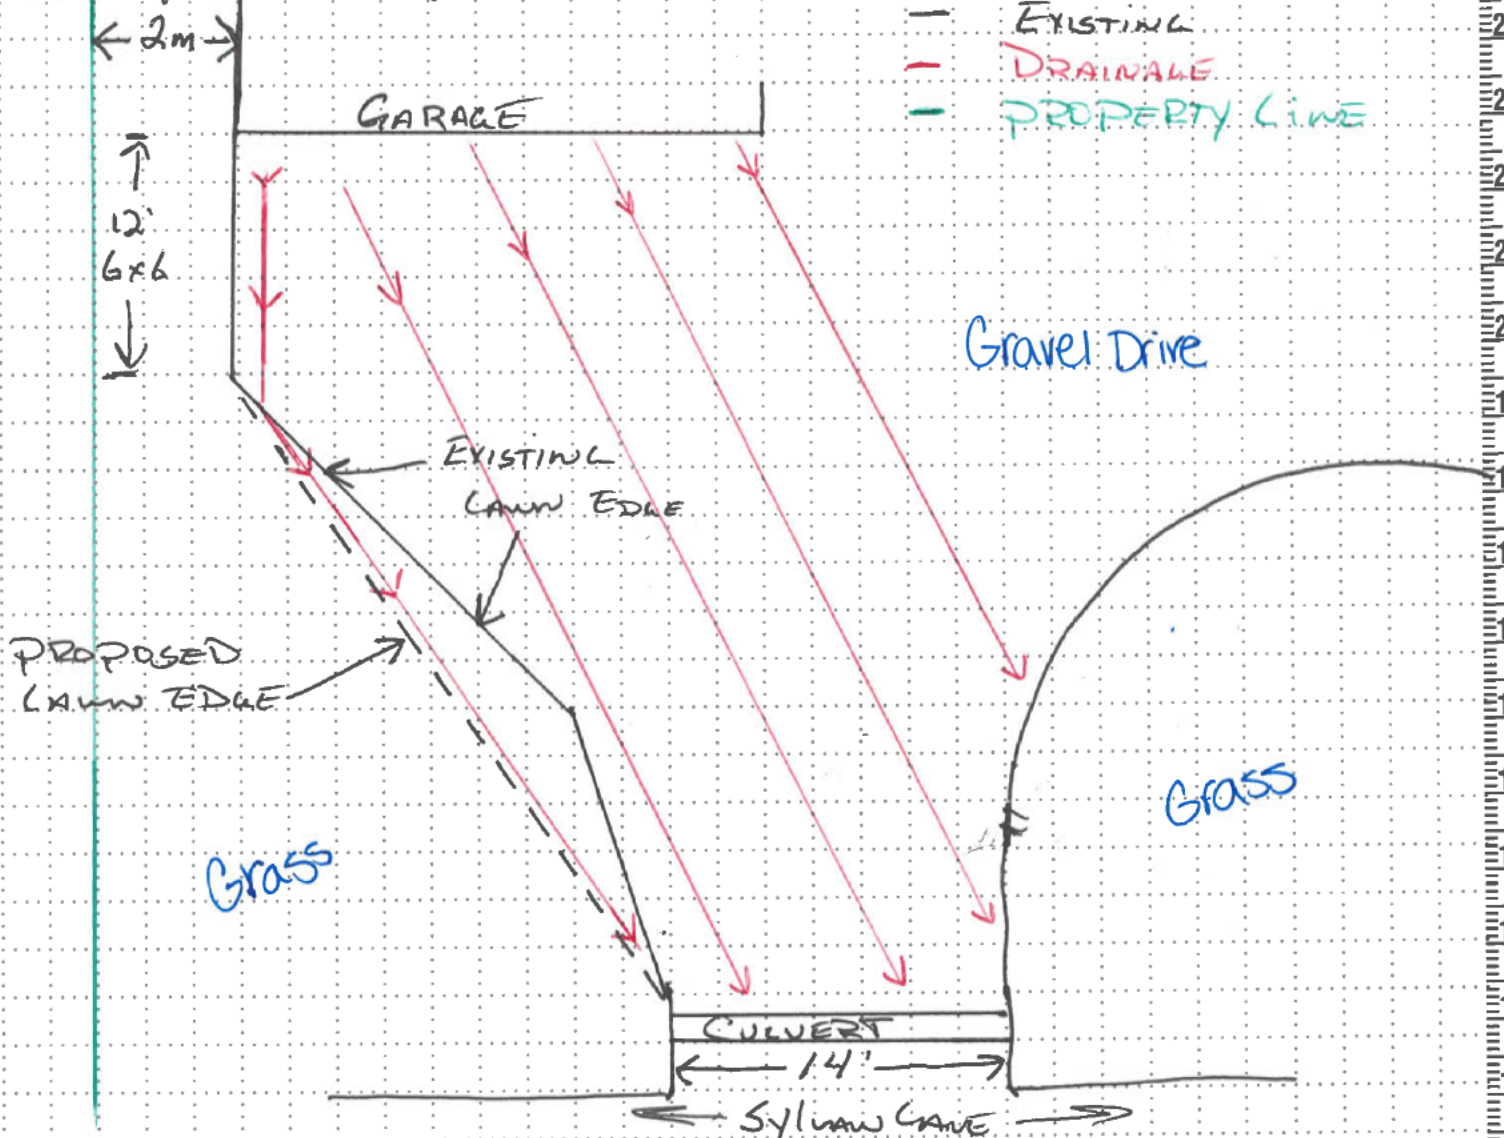 2m
EXISTING
DRAINAGE
PROPERTY LINE
GARAGE
12'
6x6
Gravel Drive
EXISTING
LAWN EDGE
PROPOSED
LAWN EDGE
Grass
Grass
CULVERT
14'
SYLVAN LANE